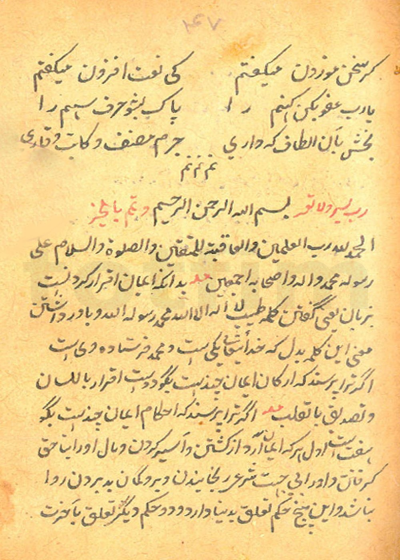 ۴۷
گر سخن موزون نمیگفتم کی نعت افزون نمیگفتم
یا رب عفو کن اکنیم را پاک بشو حرف اسیم را
بخش بآن الطاف که داری جرم مصنف و کاتب و قاری
تم تم تم
رب یسر ولا تعسر بسم الله الرحمن الرحیم و تمم بالخیر
الحمد لله رب العلمین والعاقبة للمتقین والصلوة والسلام علی
رسوله محمد واله واصحابه اجمعین بدانکه ایمان اقرار کردنست
بزبان یعنی گفتن کلمه طیب لا اله الا الله محمد رسول الله و باور داشتن
معنی این کلمه بدل که خدا یتعالی یکی است و محمد فرستاده وی است
اگر ترا پرسند که ارکان ایمان چیندست بگو دوست اقرار باللسان
و تصدیق بالقلب اگر ترا پرسند که احکام ایمان چندست بگو
هفت است اول هر که ایمان آرد از کشتن و اسیر کردن و مال او را بناحق
گرفتن و او را بی حجت شرعی رنجانیدن و بروگمان بد بردن روا
نباشد و این پنج حکم تعلق بدنیا دارد و دو حکم دیگر تعلق بآخرت